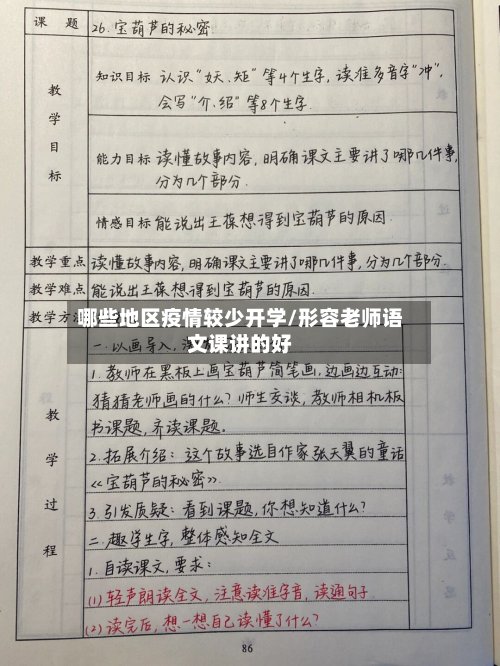 课 题 26.宝葫芦的秘密
教学目标
知识目标 认识“妖、矩”等4个生字,读准多音字“冲”,
会写“介、绍”等8个生字.
能力目标 读懂故事内容,明确课文主要讲了哪几件事,
分为几个部分.
情感目标 能说出王葆想得到宝葫芦的原因.
教学重点 读懂故事内容,明确课文主要讲了哪几件事,分为几个部分.
教学难点 能说出王葆想得到宝葫芦的原因.
教学方
哪些地区疫情较少开学/形容老师语
文课讲的好
教学过程
一.以画导入,
1.教师在黑板上画宝葫芦简笔画,边画边互动:
猜猜老师画的什么?师生交谈,教师相机板
书课题,齐读课题.
2.拓展介绍:这个故事选自作家张天翼的童话
《宝葫芦的秘密》.
3.引发质疑:看到课题,你想知道什么?
二.趣学生字,整体感知全文
1.自读课文,要求:
(1)轻声朗读全文,注意读准字音,读通句子.
(2)读完后,想一想自己读懂了什么?
86